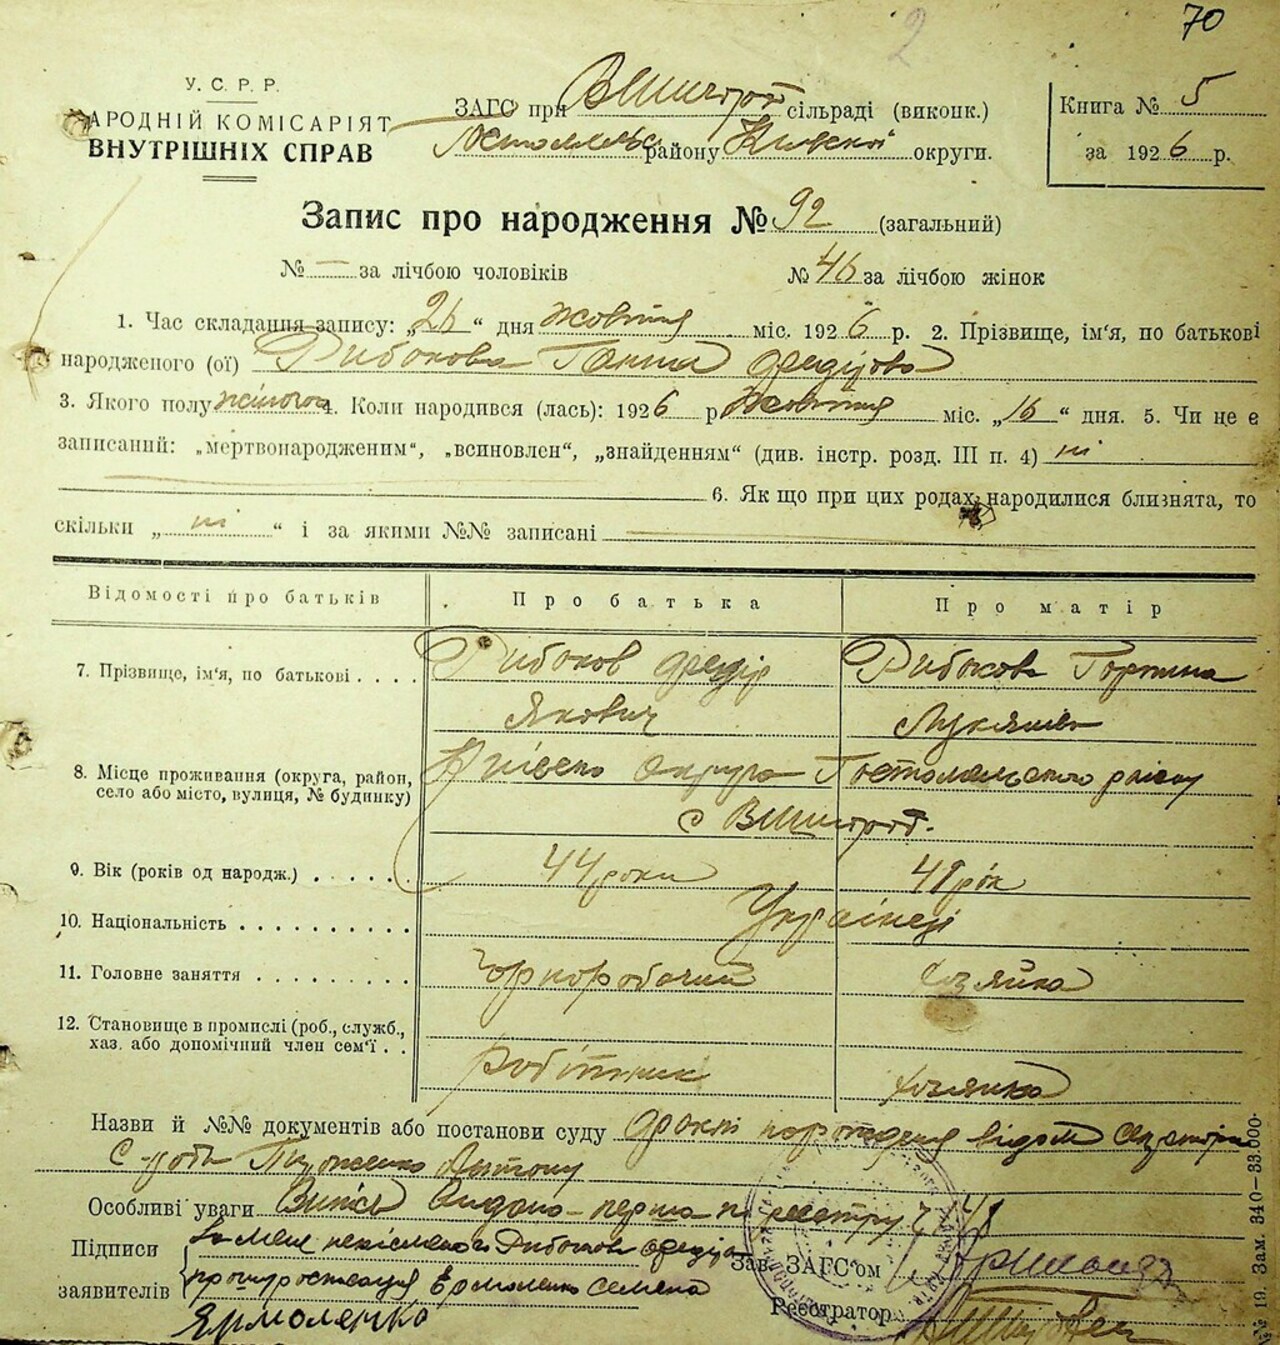 70
2
У. С. Р. Р.
НАРОДНІЙ КОМІСАРІЯТ
ВНУТРІШНІХ СПРАВ
ЗАГС при Вишгород сільраді (виконк.)
району Київської округи.
Книга № 5
за 1926 р.
Запис про народження № 92 (загальний)
№ — за лічбою чоловіків
№ 46 за лічбою жінок
1. Час складання запису: „26“ дня жовтня міс. 1926 р. 2. Прізвище, ім'я, по батькові
народженого (ої) Рибокова Ганна
3. Якого полу жіночого 4. Коли народився (лась): 1926 р Жовтня міс. „16“ дня. 5. Чи не є
записаний: „мертвонародженим“, „всиновлен“, „знайденням“ (див. інстр. розд. III п. 4) ні
6. Як що при цих родах народилися близнята, то
скільки „ні“ і за якими №№ записані
Відомості про батьків
Про батька
Про матір
7. Прізвище, ім'я, по батькові . . . .
Рибоков
Рибокова Горпина
Якович
8. Місце проживання (округа, район,
село або місто, вулиця, № будинку)
округа Гостомельського району
с Вишгород.
9. Вік (років од народж.) . . . . .
44 роки
41 рік
10. Національність . . . . . . . . . .
Українці
11. Головне заняття . . . . . . . . .
Чорноробочий
Хозяйка
12. Становище в промислі (роб., служб.,
хаз. або допомічний член сем'ї . .
Робітник
хозяйка
Назви й №№ документів або постанови суду
Антону
Особливі уваги Видано перша по реєстру
Підписи
заявителів
За мене Рибоков
Єрмоленко Семена
Ярмоленко
Зав. ЗАГС'ом
Реєстратор
№ 19. Зам. 340—33.000·